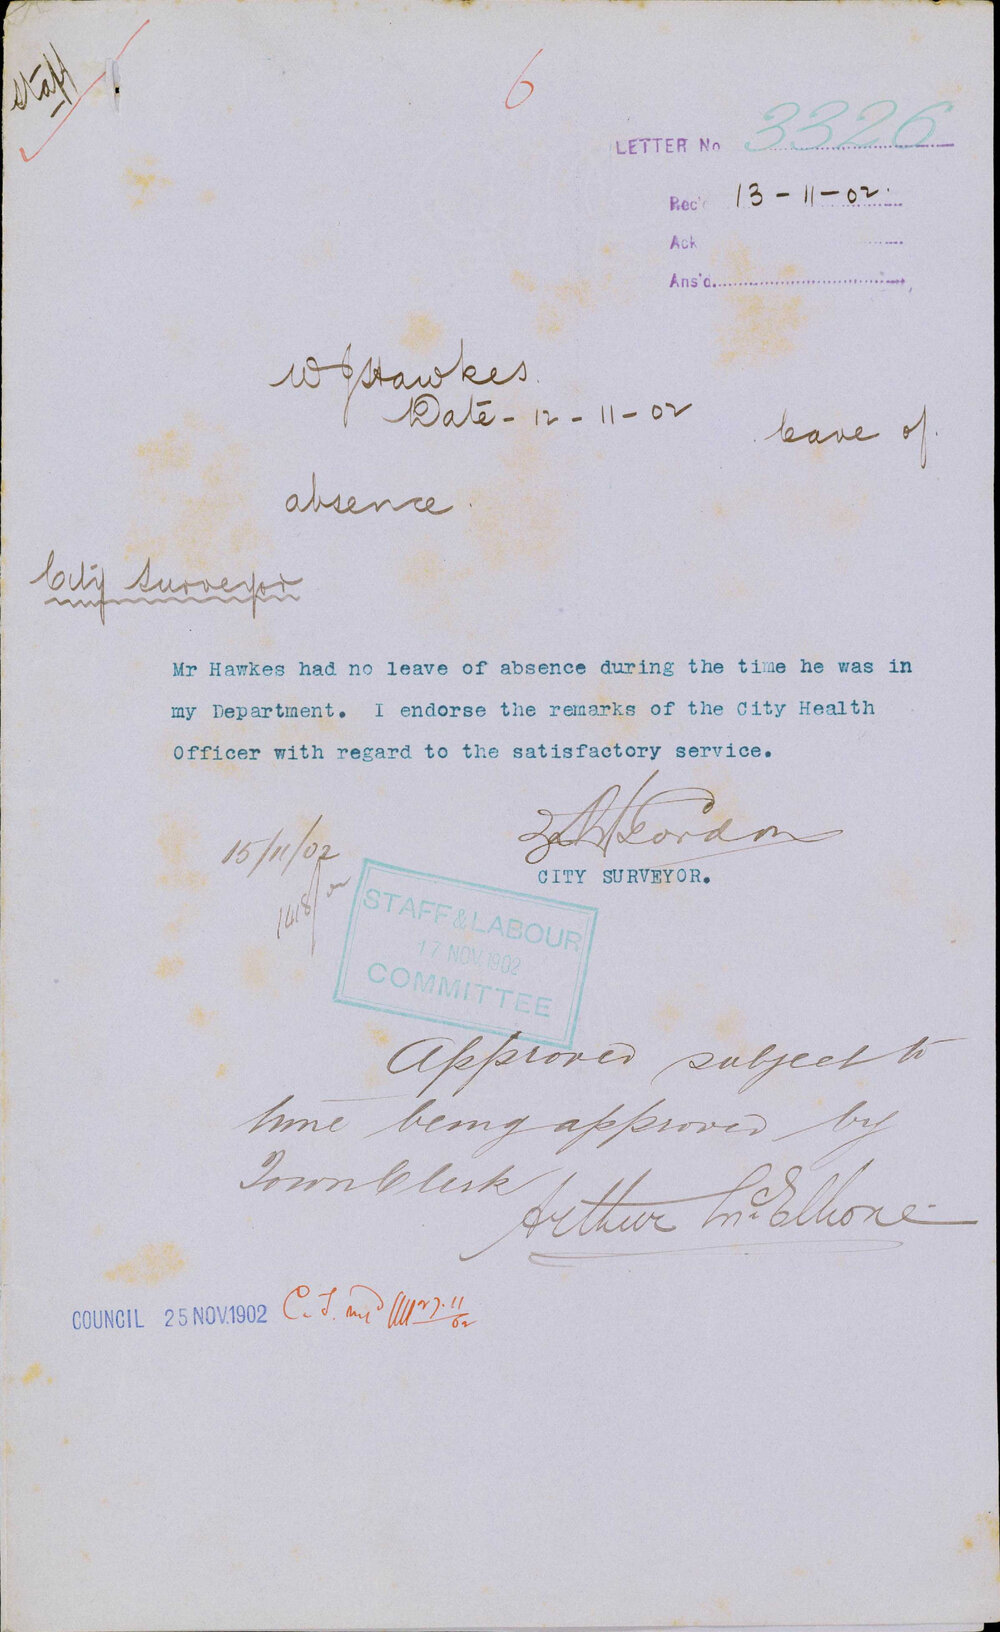 Staff
6
LETTER No 3326
Rec'd 13-11-02.
Ack
Ans'd.
W J Hawkes.
Date - 12 - 11 - 02
leave of
absence.
City Surveyor
Mr Hawkes had no leave of absence during the time he was in
my Department. I endorse the remarks of the City Health
Officer with regard to the satisfactory service.
Gordon
CITY SURVEYOR.
15/11/02
STAFF & LABOUR
17 NOV. 1902
COMMITTEE
Approved subject to
time being approved by
Town Clerk
Arthur McElhone
COUNCIL 25 NOV. 1902 27.11/02